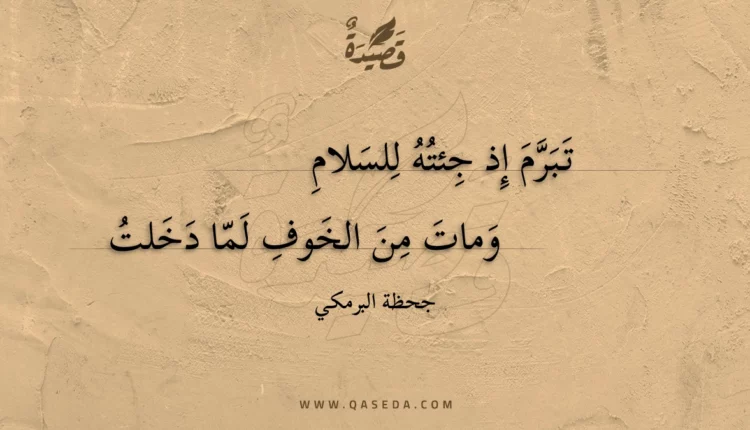 قَصِيدَةٌ
تَبَرَّمَ إِذ جِئتُهُ لِلسَلامِ
وَماتَ مِنَ الخَوفِ لَمّا دَخَلتُ
جحظة البرمكي
WWW.QASEDA.COM